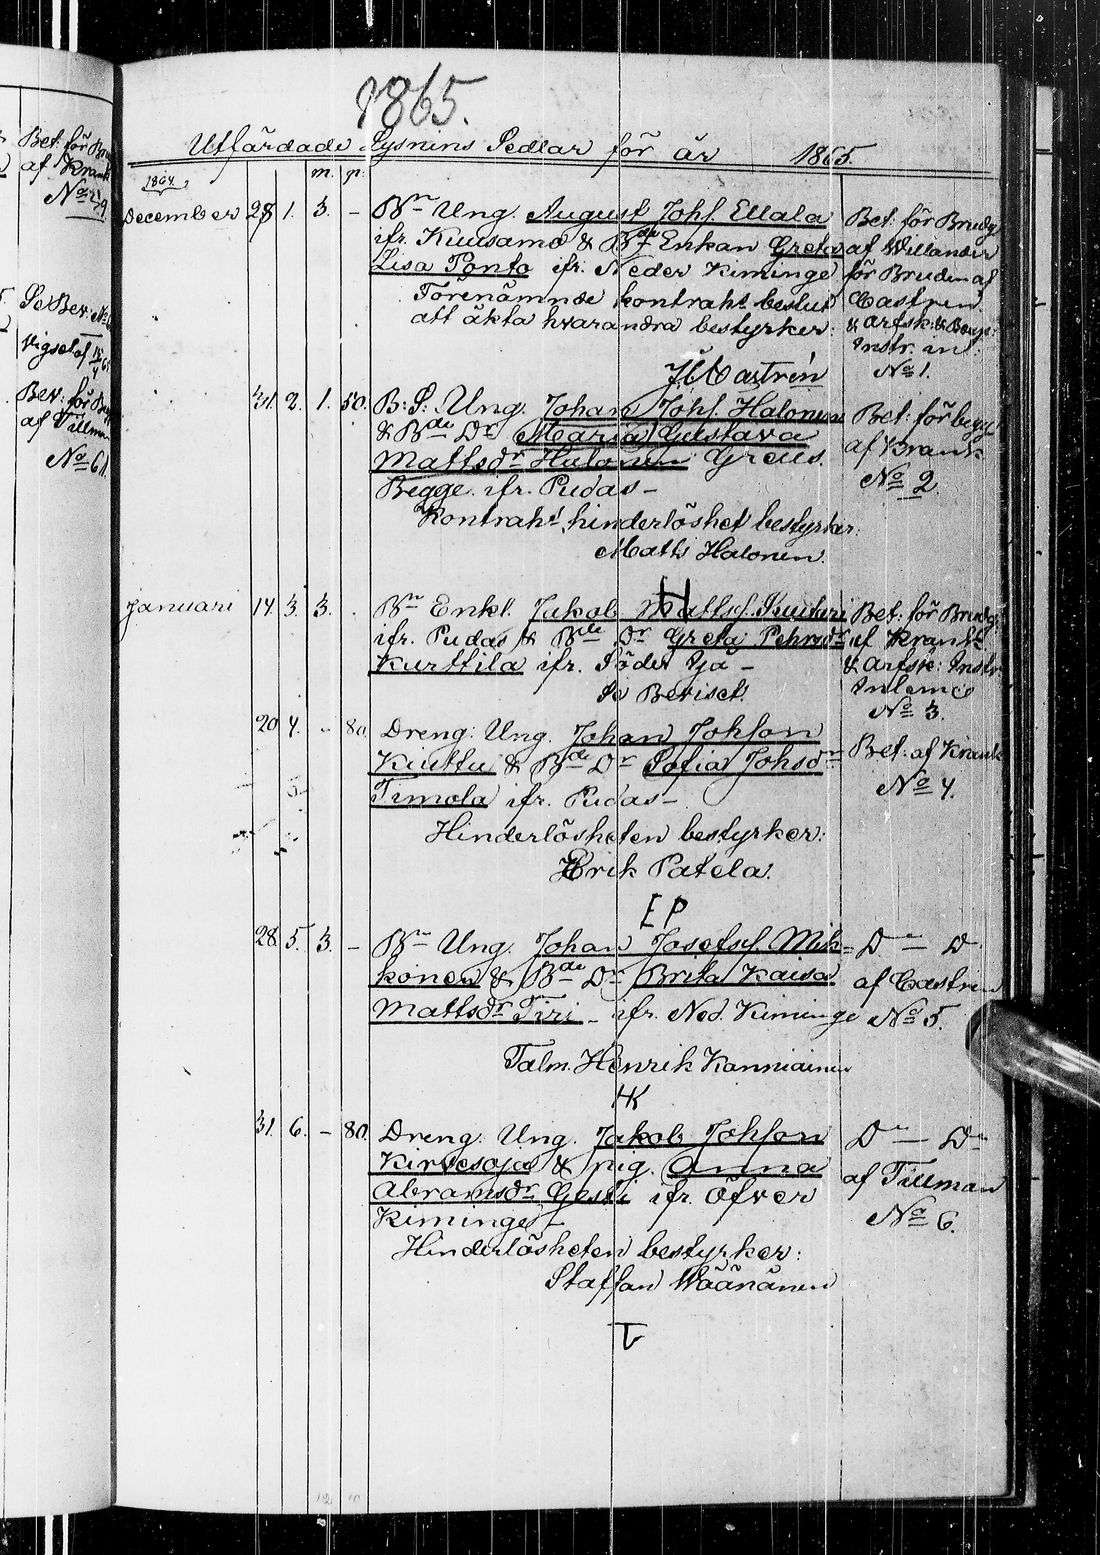 1865.
Utfärdade Lysnins Sedlar för år 1865
m. p.
1864
December 28 1. 3. - Bn Ung. August Johs. Ellala
ifr. Kuusamo & Bde Enkan Greta
Lisa Ponto ifr. Neder Kiminge
Förenämnde kontraht beslut
att äkta hvarandra bestyrker:
Castrén
Bet. för Brudg.
af Willander
för Bruden af
Castren.
& Arfsk:
Instr. in:
No 1.
31. 2. 1. 50. B: S: Ung. Johan Johs. Halonen
& Bde Dr Maria Gustava
Mattsdr Halonen Greus.
Begge ifr. Pudas -
Kontraht. hinderlöshet bestyrker:
Matts Halonen.
Bet. för begge
af Krank
No 2.
H
Januari 14. 3 3. . Bn Enkl. Jakob Mattss.
ifr. Pudas & Bde Dr Greta Pehrsdr
Kurttila ifr. Söder Ijä -
Se Beviset.
Bet. för Brudg:
af Krank.
& Arfsk: Instr.
Inlemd
No 3.
20 4. - 80. Dreng: Ung. Johan Johsson
Kiuttu & Bde Dr Sofia Johsdr
Timola ifr. Pudas -
Hinderlösheten bestyrker:
Erik Patela.
EP
Bet. af Krank
No 4.
28. 5. 3. - Bn Ung. Johan Josefss. Mik-
konen & Bde Dr Brita Kaisa
Mattsdr Tiri - ifr. Ned. Kiminge
Talm. Henrik Kanniainen
HK
Do - Do
af Castren
No 5.
31. 6. - 80. Dreng. Ung. Jakob Johsson
Kirvesoja & pig. Anna
Abramsdr Gesti ifr. Öfver
Kiminge -
Hinderlösheten bestyrker:
Staffan Wäänänen
Do - Do
af Tillman
No 6.
Bet. för
af Krank
Se Bev.
Vigsel af
Bev: för
af Tillman
No 61.